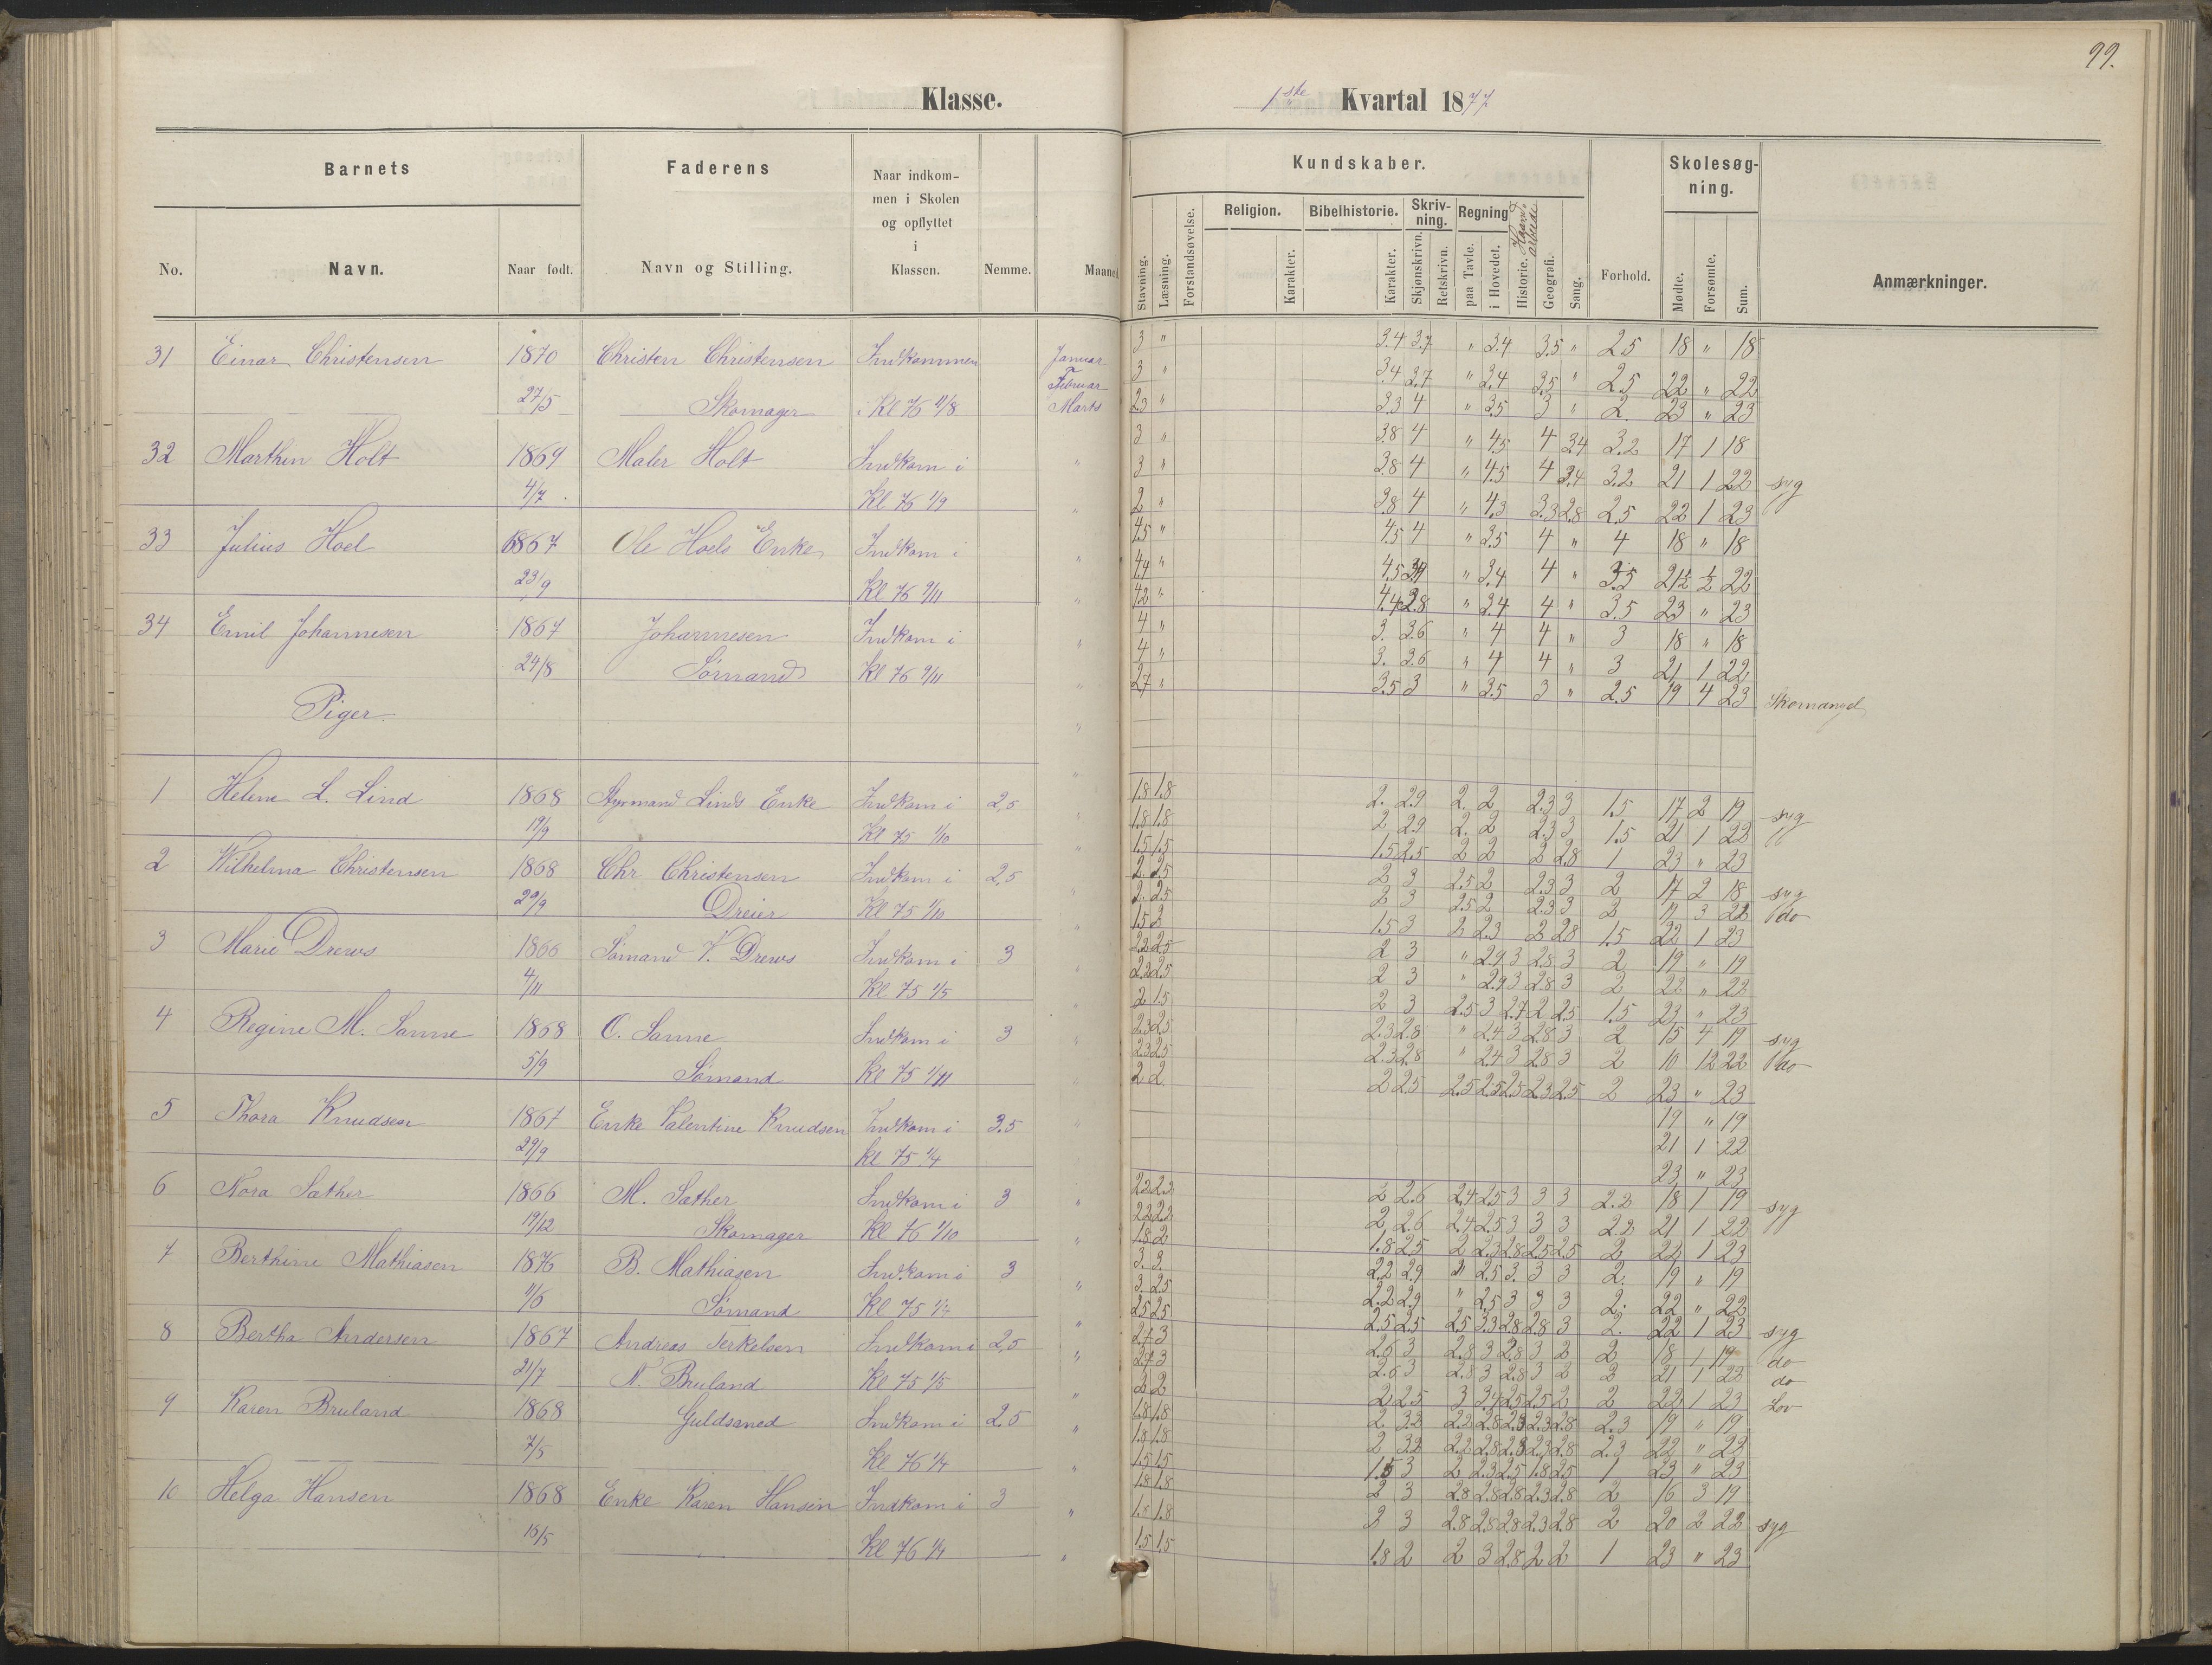 99.
Klasse.
1ste Kvartal 1877
Barnets
Faderens
Naar indkom-
men i Skolen
og opflyttet
i
Klassen.
No.
Navn.
Naar født.
Navn og Stilling.
Nemme.
Maaned
Kundskaber.
Skolesøg-
ning.
Stavning.
Læsning.
Forstandsøvelse.
Religion.
Karakter.
Bibelhistorie.
Karakter.
Skriv-
ning.
Skjønskrivn.
Retskrivn.
Regning
paa Tavle.
i Hovedet.
Historie.
Haand-
arbeide
Geografi.
Sang.
Forhold.
Mødte.
Forsømte.
Sum.
Anmærkninger.
31 Einar Christensen 1870 Christen Christensen Indkommen Januar
Februar
27/5 Skomager i Kl 76 11/8 Marts
3 " 3.4 3.7 " 3.4 3.5 " 2.5 18 " 18
3 " 3.4 3.7 " 3.4 3.5 " 2.5 22 " 22
2.3 " 3.3 4 " 3.5 3 " 2. 23 " 23
32 Marthin Holt 1869 Maler Holt Indkom i "
4/7 Kl 76 1/9 "
3 " 3.8 4 " 4.5 4 3.4 3.2 17 1 18
3 " 3.8 4 " 4.5 4 3.4 3.2 21 1 22 syg
2 " 3.8 4 " 4.3 3.3 2.8 2.5 22 1 23
33 Julius Hoel 1867 Ole Hoels Enke Indkom i "
23/9 Kl 76 9/11 "
4.5 " 4.5 4 " 3.5 4 " 4 18 " 18
4.4 " 4.5 " 3.4 4 " 3.5 21½ ½ 22
4.2 " 4.4 3.8 " 3.4 4 " 3.5 23 " 23
34 Emil Johannesen 1867 Johannesen Indkom i "
24/8 Sømand Kl 76 9/11 "
4 " 3. 3.6 " 4 4 " 3 18 " 18
4 " 3. 3.6 " 4 4 " 3 21 1 22
2.7 " 3.5 3 " 3.5 3 " 2.5 19 4 23 Skomangel
Piger.
1 Helene L. Lind 1868 Styrmand Linds Enke Indkom i 2,5 "
19/9 Kl 75 1/10 "
1.8 1.8 2. 2.9 2. 2 2.3 3 1.5 17 2 19 syg
1.8 1.8 2 2.9 2. 2 2.3 3 1.5 21 1 22
1.5 1.5 1.5 2.5 2 2 2 2.8 1 23 " 23
2 Wilhelma Christensen 1868 Chr Christensen Indkom i 2,5 "
29/9 Dreier Kl 75 1/10 "
2 2.5 2 3 2.5 2 2.3 3 2 17 2 18 syg
2. 2.5 2 3 2.5 2 2.3 3 2 19 3 22 do
1.5 2 1.5 3 2 2.3 2 2.8 1.5 22 1 23
3 Marie Drews 1866 Sømand V. Drews Indkom i 3 "
4/11 Kl 75 1/5 "
2.2 2.5 2 3 " 2.9 3 2.8 3 2 19 " 19
2.2 2.5 2 3 " 2.9 3 2.8 3 2 22 " 22
2 1.5 2 3 2.5 3 2.7 2 2.5 1.5 23 " 23
4 Regine M. Sanne 1868 O. Sanne Indkom i 3 "
5/9 Sømand Kl 75 1/11 "
2.3 2.5 2.3 2.8 " 2.4 3 2.8 3 2 15 4 19 syg
2.3 2.5 2.3 2.8 " 2.4 3 2.8 3 2 10 12 22 do
2 2. 2 2.5 2.5 2.5 2.5 2.3 2.5 2 23 " 23
5 Thora Knudsen 1867 Enke Valentine Knudsen Indkom i 3.5 "
29/9 Kl 75 1/4
19 " 19
21 1 22
23 " 23
6 Nora Sæther 1866 M. Sæther Indkom i 3 "
19/12 Skomager Kl 76 1/10 "
2.2 2.2 2 2.6 2.4 2.5 3 3 3 2.2 18 1 19 syg
2.2 2.2 2 2.6 2.4 2.5 3 3 3 2.2 21 1 22
1.8 2 1.8 2.5 2 2.3 2.8 2.5 2.5 2 22 1 23
7 Berthine Mathiasen 1876 B. Mathiasen Indkom i 3 "
11/6 Sømand Kl 75 1/4 "
3. 3. 2.2 2.9 " 2.5 3. 3 3 2. 19 " 19
3. 2.5 2.2 2.9 " 2.5 3 3 3 2. 22 " 22
2.5 2.5 2.5 2.5 2.5 3.3 2.8 2.8 3 2. 22 1 23 syg
8 Bertha Andersen 1867 Andreas Terkelsen Indkom i 2,5 "
21/7 N. Bruland Kl 75 1/5 "
2.7 3 2.6 3 2.8 3 2.8 3 2 2 18 1 19 do
2.7 3 2.6 3 2.8 3 2.8 3 2 2 21 1 22 do
2 2 2 2.5 3 3.4 2.5 2.5 2 2 22 1 23 Lov
9 Karen Bruland 1868 Guldsmed Indkom i 2.5 "
7/5 Kl 76 1/4 "
1.8 1.8 2. 3.2 2.2 2.8 2.3 2.3 2.8 2.3 19 " 19
1.8 1.8 2 3.2 2.2 2.8 2.3 2.3 2.8 2.3 22 " 22
1.5 1.5 1.5 3 2 2.3 2.5 1.8 2.5 1 23 " 23
10 Helga Hansen 1868 Enke Karen Hansen Indkom i 3 "
15/5 Kl 76 1/4 "
1.8 1.8 2 3 2.8 2.8 2.8 2.3 2.8 2 16 3 19
1.8 1.8 2 3 2.8 2.8 2.8 2.3 2.8 2 20 2 22 syg
1.5 1.5 1.8 2 2 3 2.8 2 2 1 23 " 23